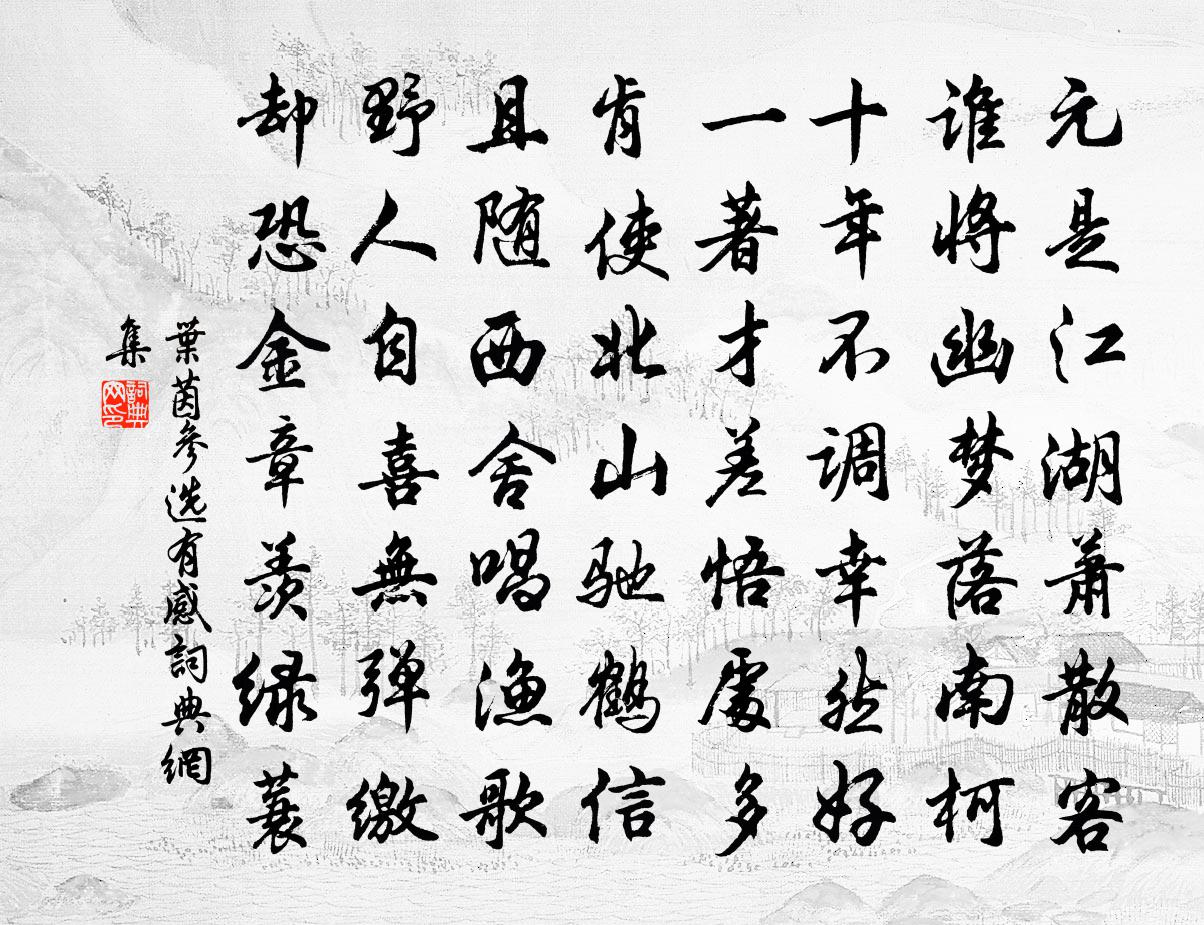 元是江湖萧散客
谁将幽梦落南柯
十年不调幸然好
一著才差悟處多
肯使北山驰鹤信
且随西舍唱渔歌
野人自喜無弹缴
却恐金章羡绿蓑
葉茵參选有感詞典網
集
詞典
网印